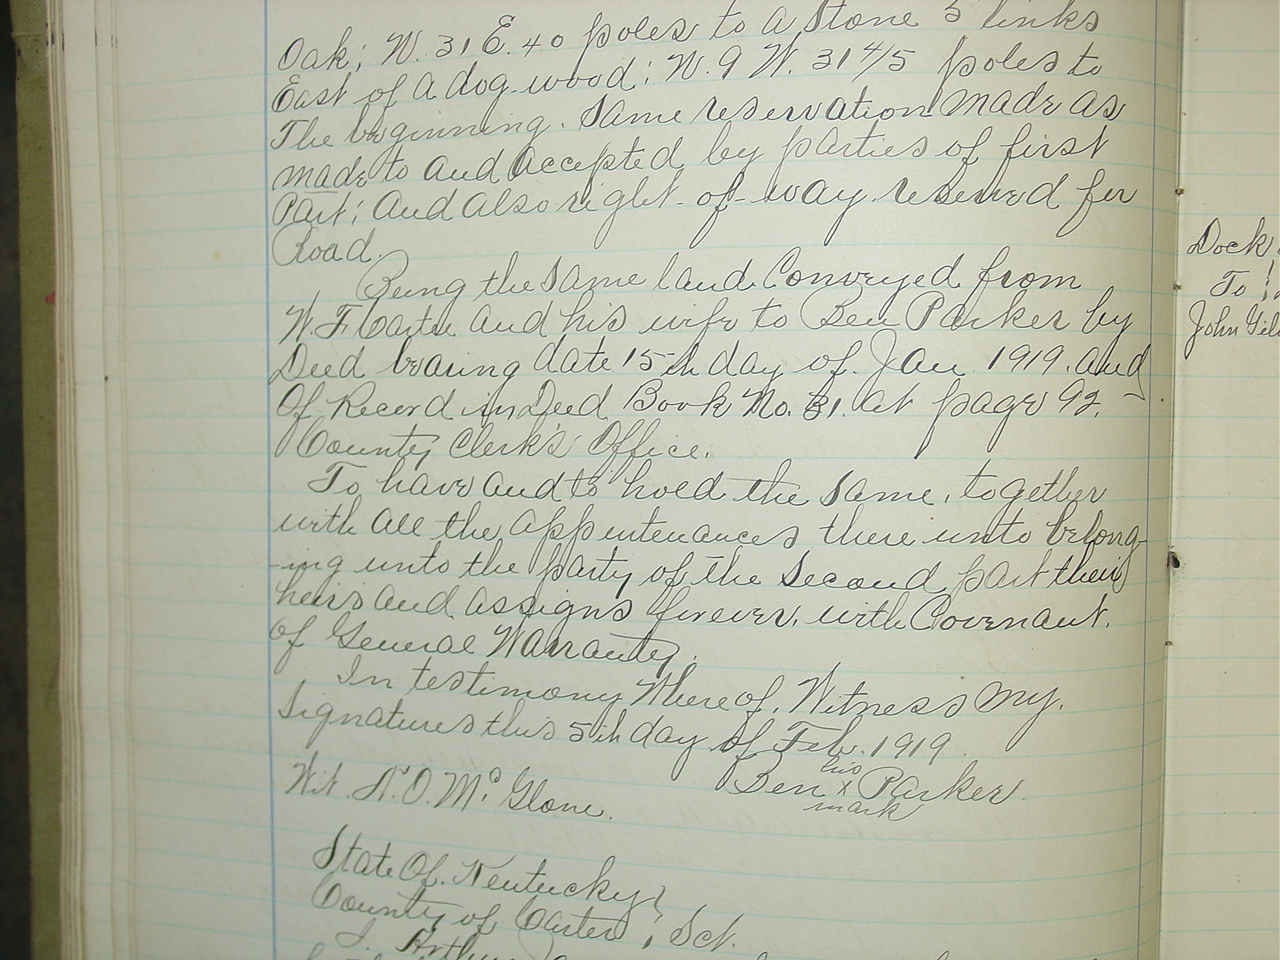 Oak; N. 31 E. 40 poles to a Stone 5 links
East of a dog-wood; N. 9 W. 31 4/5 poles to
The beginning. Same reservation made as
made to and accepted by parties of first
Part; and also right-of-way reserved for
Road.
Being the same land Conveyed from
W.F. Carter and his wife to Ben Parker by
Deed bearing date 15th day of Jan 1919. and
Of Record in Deed Book No. 31. at page 92.
County Clerk's Office.
To have and to hold the same, together
with all the appurtenances there unto belong-
-ing unto the party of the Second part their
heirs and assigns forever, with Covenant.
Of General Warranty.
In testimony Where of, Witness my.
Signatures this 5th day of Feb. 1919.
his
Ben x Parker
mark
Wit. N.O. McGlone.
State Of. Kentucky
County of Carter; Sct.
I. Arthur J
Dock
To
John Gil